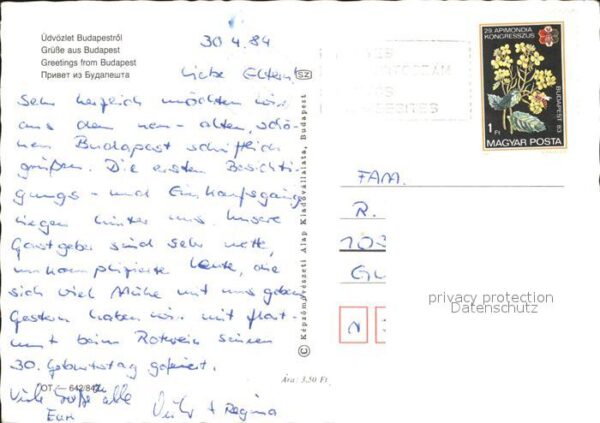 Üdvözlet Budapestről
Grüße aus Budapest
Greetings from Budapest
Привет из Будапешта
30.4.84
Liebe Eltern!
Sehr herzlich möchten wir
aus dem neu-alten, schö-
nen Budapest schriftlich
grüßen. Die ersten Besichti-
gungs- und Einkaufsgänge
liegen hinter uns. Unsere
Gastgeber sind sehr nette,
unkomplizierte Leute, die
sich viel Mühe mit uns geben.
Gestern haben wir mit
beim Rotwein seinen
30. Geburtstag gefeiert.
Viele Grüße alle
Eure + Regina
OT — 642/842
Ára: 3,50 Ft
SZ
© Képzőművészeti Alap Kiadóvállalata, Budapest
29. APIMONDIA
KONGRESSZUS
BUDAPEST 83
1 Ft
MAGYAR POSTA
FAM.
R.
privacy protection
Datenschutz